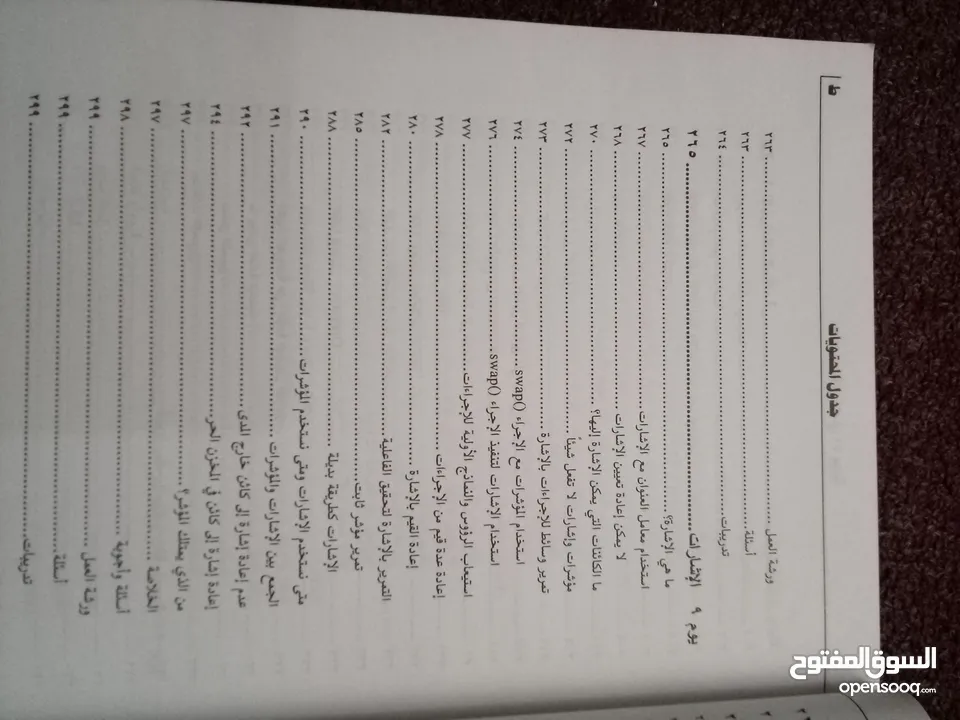 ط جدول المحتويات
ورشة العمل ........ ٢٦٣
أسئلة ........ ٢٦٣
تدريبات ........ ٢٦٤
يوم ٩ الإشارات ........ ٢٦٥
ما هي الإشارة؟ ........ ٢٦٥
استخدام معامل العنوان مع الإشارات ........ ٢٦٧
لا يمكن إعادة تعيين الإشارات ........ ٢٦٨
ما الكائنات التي يمكن الإشارة إليها؟ ........ ٢٧٠
مؤشرات وإشارات لا تفعل شيئاً ........ ٢٧٢
تمرير وسائط للإجراءات بالإشارة ........ ٢٧٣
استخدام المؤشرات مع الإجراء swap() ........ ٢٧٤
استخدام الإشارات لتنفيذ الإجراء swap() ........ ٢٧٦
استيعاب الرؤوس والنماذج الأولية للإجراءات ........ ٢٧٧
إعادة عدة قيم من الإجراءات ........ ٢٧٨
إعادة القيم بالإشارة ........ ٢٨٠
التمرير بالإشارة لتحقيق الفاعلية ........ ٢٨٢
تمرير مؤشر ثابت ........ ٢٨٥
الإشارات كطريقة بديلة ........ ٢٨٨
متى نستخدم الإشارات ومتى نستخدم المؤشرات ........ ٢٩٠
الجمع بين الإشارات والمؤشرات ........ ٢٩١
عدم إعادة إشارة إلى كائن خارج المدى ........ ٢٩٢
إعادة إشارة إلى كائن في المخزن الحر ........ ٢٩٤
من الذي يمتلك المؤشر؟ ........ ٢٩٧
الخلاصة ........ ٢٩٧
أسئلة وأجوبة ........ ٢٩٨
ورشة العمل ........ ٢٩٩
أسئلة ........ ٢٩٩
تدريبات ........ ٢٩٩
السوق المفتوح
opensooq.com